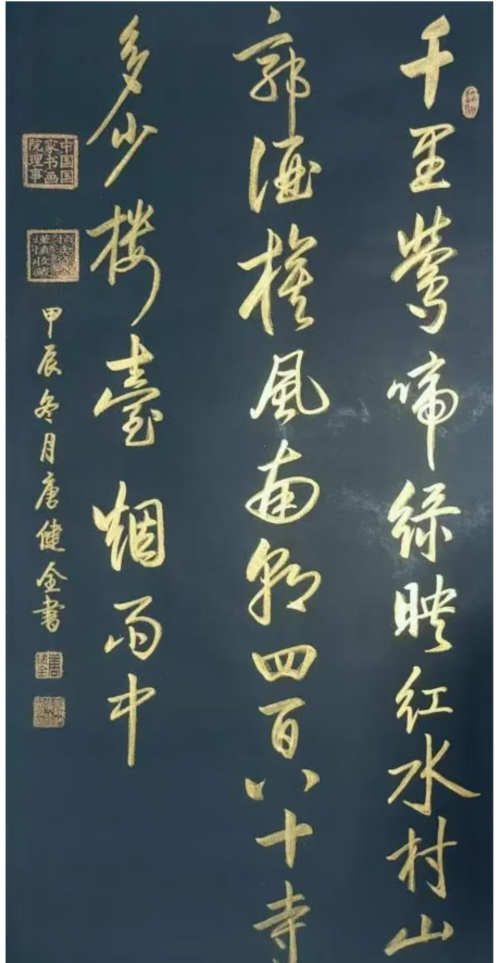 千里莺啼绿映红水村山
郭酒旗風南朝四百八十寺
多少楼臺烟雨中
中国国家书画院理事
甲辰冬月唐健全書
唐健全